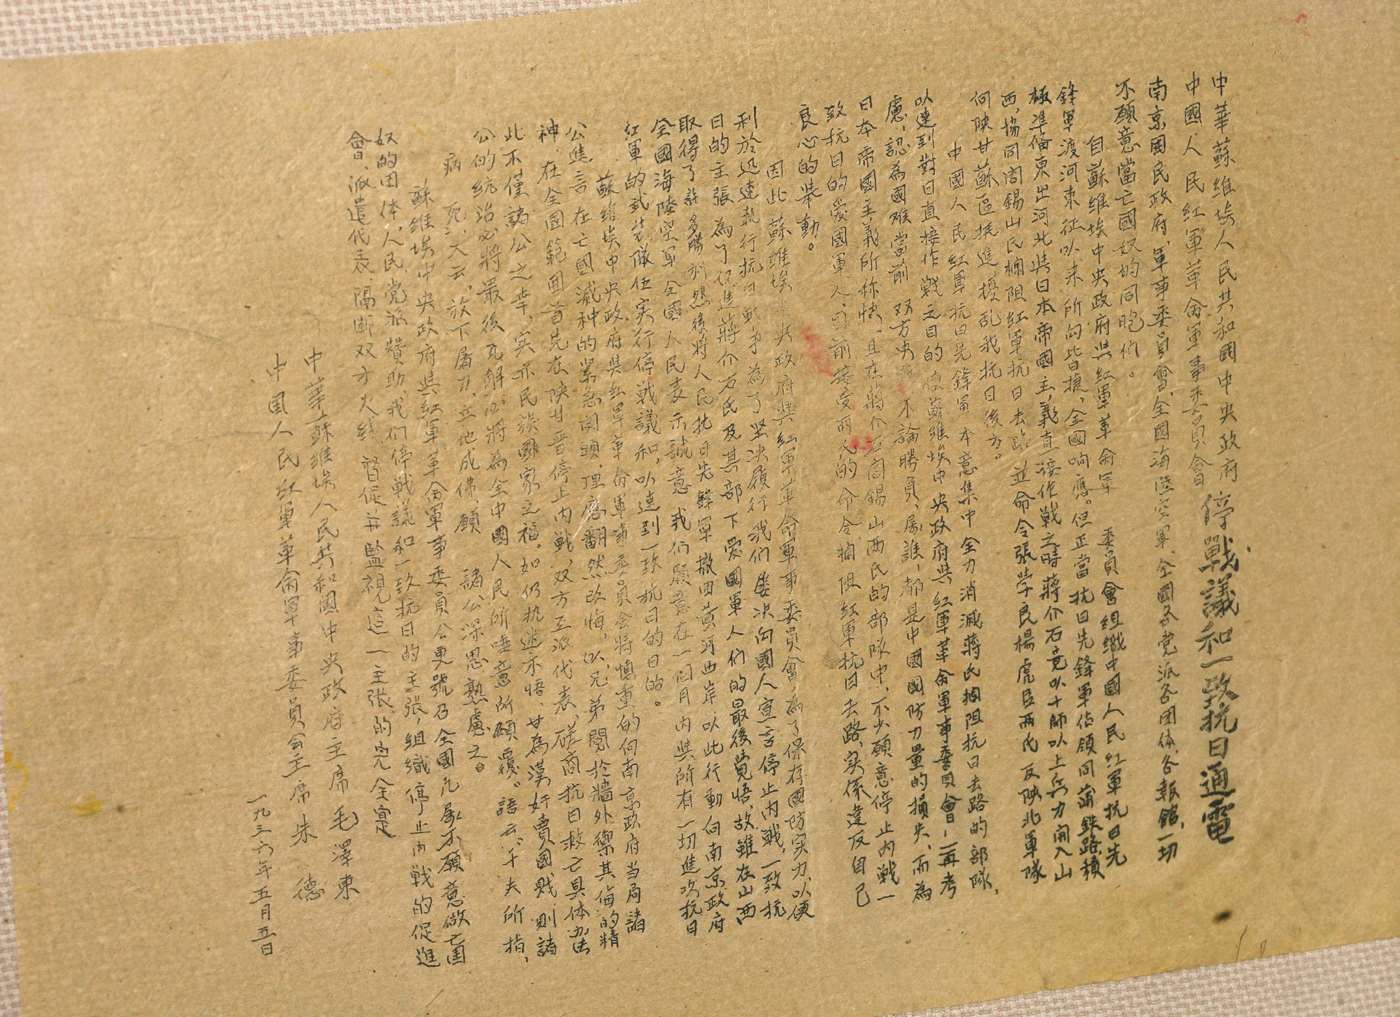 中華蘇維埃人民共和國中央政府
中國人民紅軍革命軍事委員會
停戰議和一致抗日通電
南京國民政府，軍事委員會，全國海陸空軍、全國各党派各团体、各報館，一切
不願意當亡國奴的同胞们。
自蘇維埃中央政府與紅軍革命軍 委員會組織中國人民紅軍抗日先
鋒軍渡河東征以来所向皆捷，全國响應。但正當抗日先鋒軍佔領同蒲鉄路積
極準備東出河北與日本帝國主義直接作戰之時蔣介石竟以十師以上兵力開入山
西，協同閻錫山氏攔阻紅軍抗日去路 並命令張学良楊虎臣兩氏 及陝北軍隊
向陝甘蘇區挺進，擾乱我抗日後方。
中國人民紅軍抗日先鋒軍 本意集中全力消滅蔣氏攔阻抗日去路的部隊，
以達到對日直接作戰之目的 蘇維埃中央政府與紅軍革命軍事委員會一再考
慮，認為國难當前 双方 不論勝負，屬誰，都是中國國防力量的損失，而為
日本帝國主義所称快。且在蔣介石閻錫山兩氏的部隊中，不少願意停止内戰一
致抗日的爱國軍人，目前接受兩氏的命令攔阻紅軍抗日去路，实係違反自己
良心的举動。
因此蘇維埃 央政府與紅軍革命軍事委員會，為了保存國防实力，以便
利於迅速執行抗日戰争，為了坚决履行我们屡次向國人宣言停止内戰，一致抗
日的主張，為了促進蔣介石氏及其部下愛國軍人们的最後覺悟，故雖在山西
取得了許多勝利，然後將人民抗日先鋒軍撤回黄河西岸以此行動向南京政府
全國海陸空軍全國人民表示誠意 我们願意在一個月内與所有一切進攻抗日
紅軍的武装隊伍实行停戰議和，以達到一致抗日的目的。
蘇維埃中央政府與紅軍革命軍事委員会將慎重的向南京政府当局諸
公進言在亡國滅种的紧急関頭，理應翻然改悔，以兄弟鬩於牆外禦其侮的精
神，在全國範圍首先在陝甘晋停止内戰，双方互派代表，磋商抗日救亡具体办法
此不僅諸公之幸，实亦民族國家之福，如仍执迷不悟，甘為漢奸賣國賊，則諸
公的統治必將最後瓦解，必將為全中國人民所唾意所顛覆。語云、千夫所指，
病 死，又云，放下屠刀，立地成佛，願 諸公深思熟慮之。
蘇維埃中央政府與紅軍革命軍事委員会更號召全國凡属不願意做亡国
奴的团体，人民党派贊助我们停戰議和一致抗日的主張，組織停止内戰的促進
會，派遣代表隔断双方火線，督促并監視這一主張的完全實
中華蘇維埃人民共和國中央政府主席毛澤東
中國人民紅軍革命軍事委員会主席朱 德
一九三六年五月五日